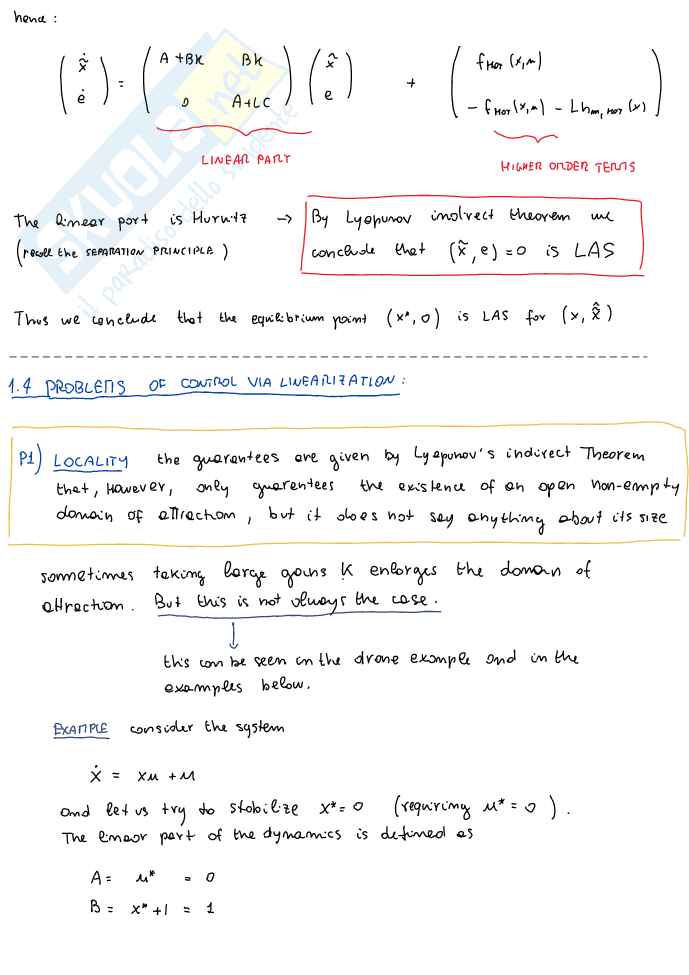 hence:
( ẋ̃ ; ė ) = ( A+BK BK ; 0 A+LC ) ( x̃ ; e ) + ( f_HOT(x,u) ; − f_HOT(x,u) − L h_m,HOT(x) )
LINEAR PART
HIGHER ORDER TERMS
The linear part is Hurwitz → By Lyapunov indirect theorem we
(recall the SEPARATION PRINCIPLE) conclude that (x̃, e) = 0 is LAS
Thus we conclude that the equilibrium point (x*, 0) is LAS for (x, x̃̂)
1.4 PROBLEMS OF CONTROL VIA LINEARIZATION:
P1) LOCALITY the guarantees are given by Lyapunov's indirect Theorem
that, however, only guarantees the existence of an open non-empty
domain of attraction, but it does not say anything about its size
sometimes taking large gains K enlarges the domain of
attraction. But this is not always the case.
↓
this can be seen in the drone example and in the
examples below.
EXAMPLE consider the system
ẋ = xu + u
and let us try to stabilize x* = 0 (requiring u* = 0).
The linear part of the dynamics is defined as
A = u* = 0
B = x* + 1 = 1
SKUOLA.net
il paradiso dello studente